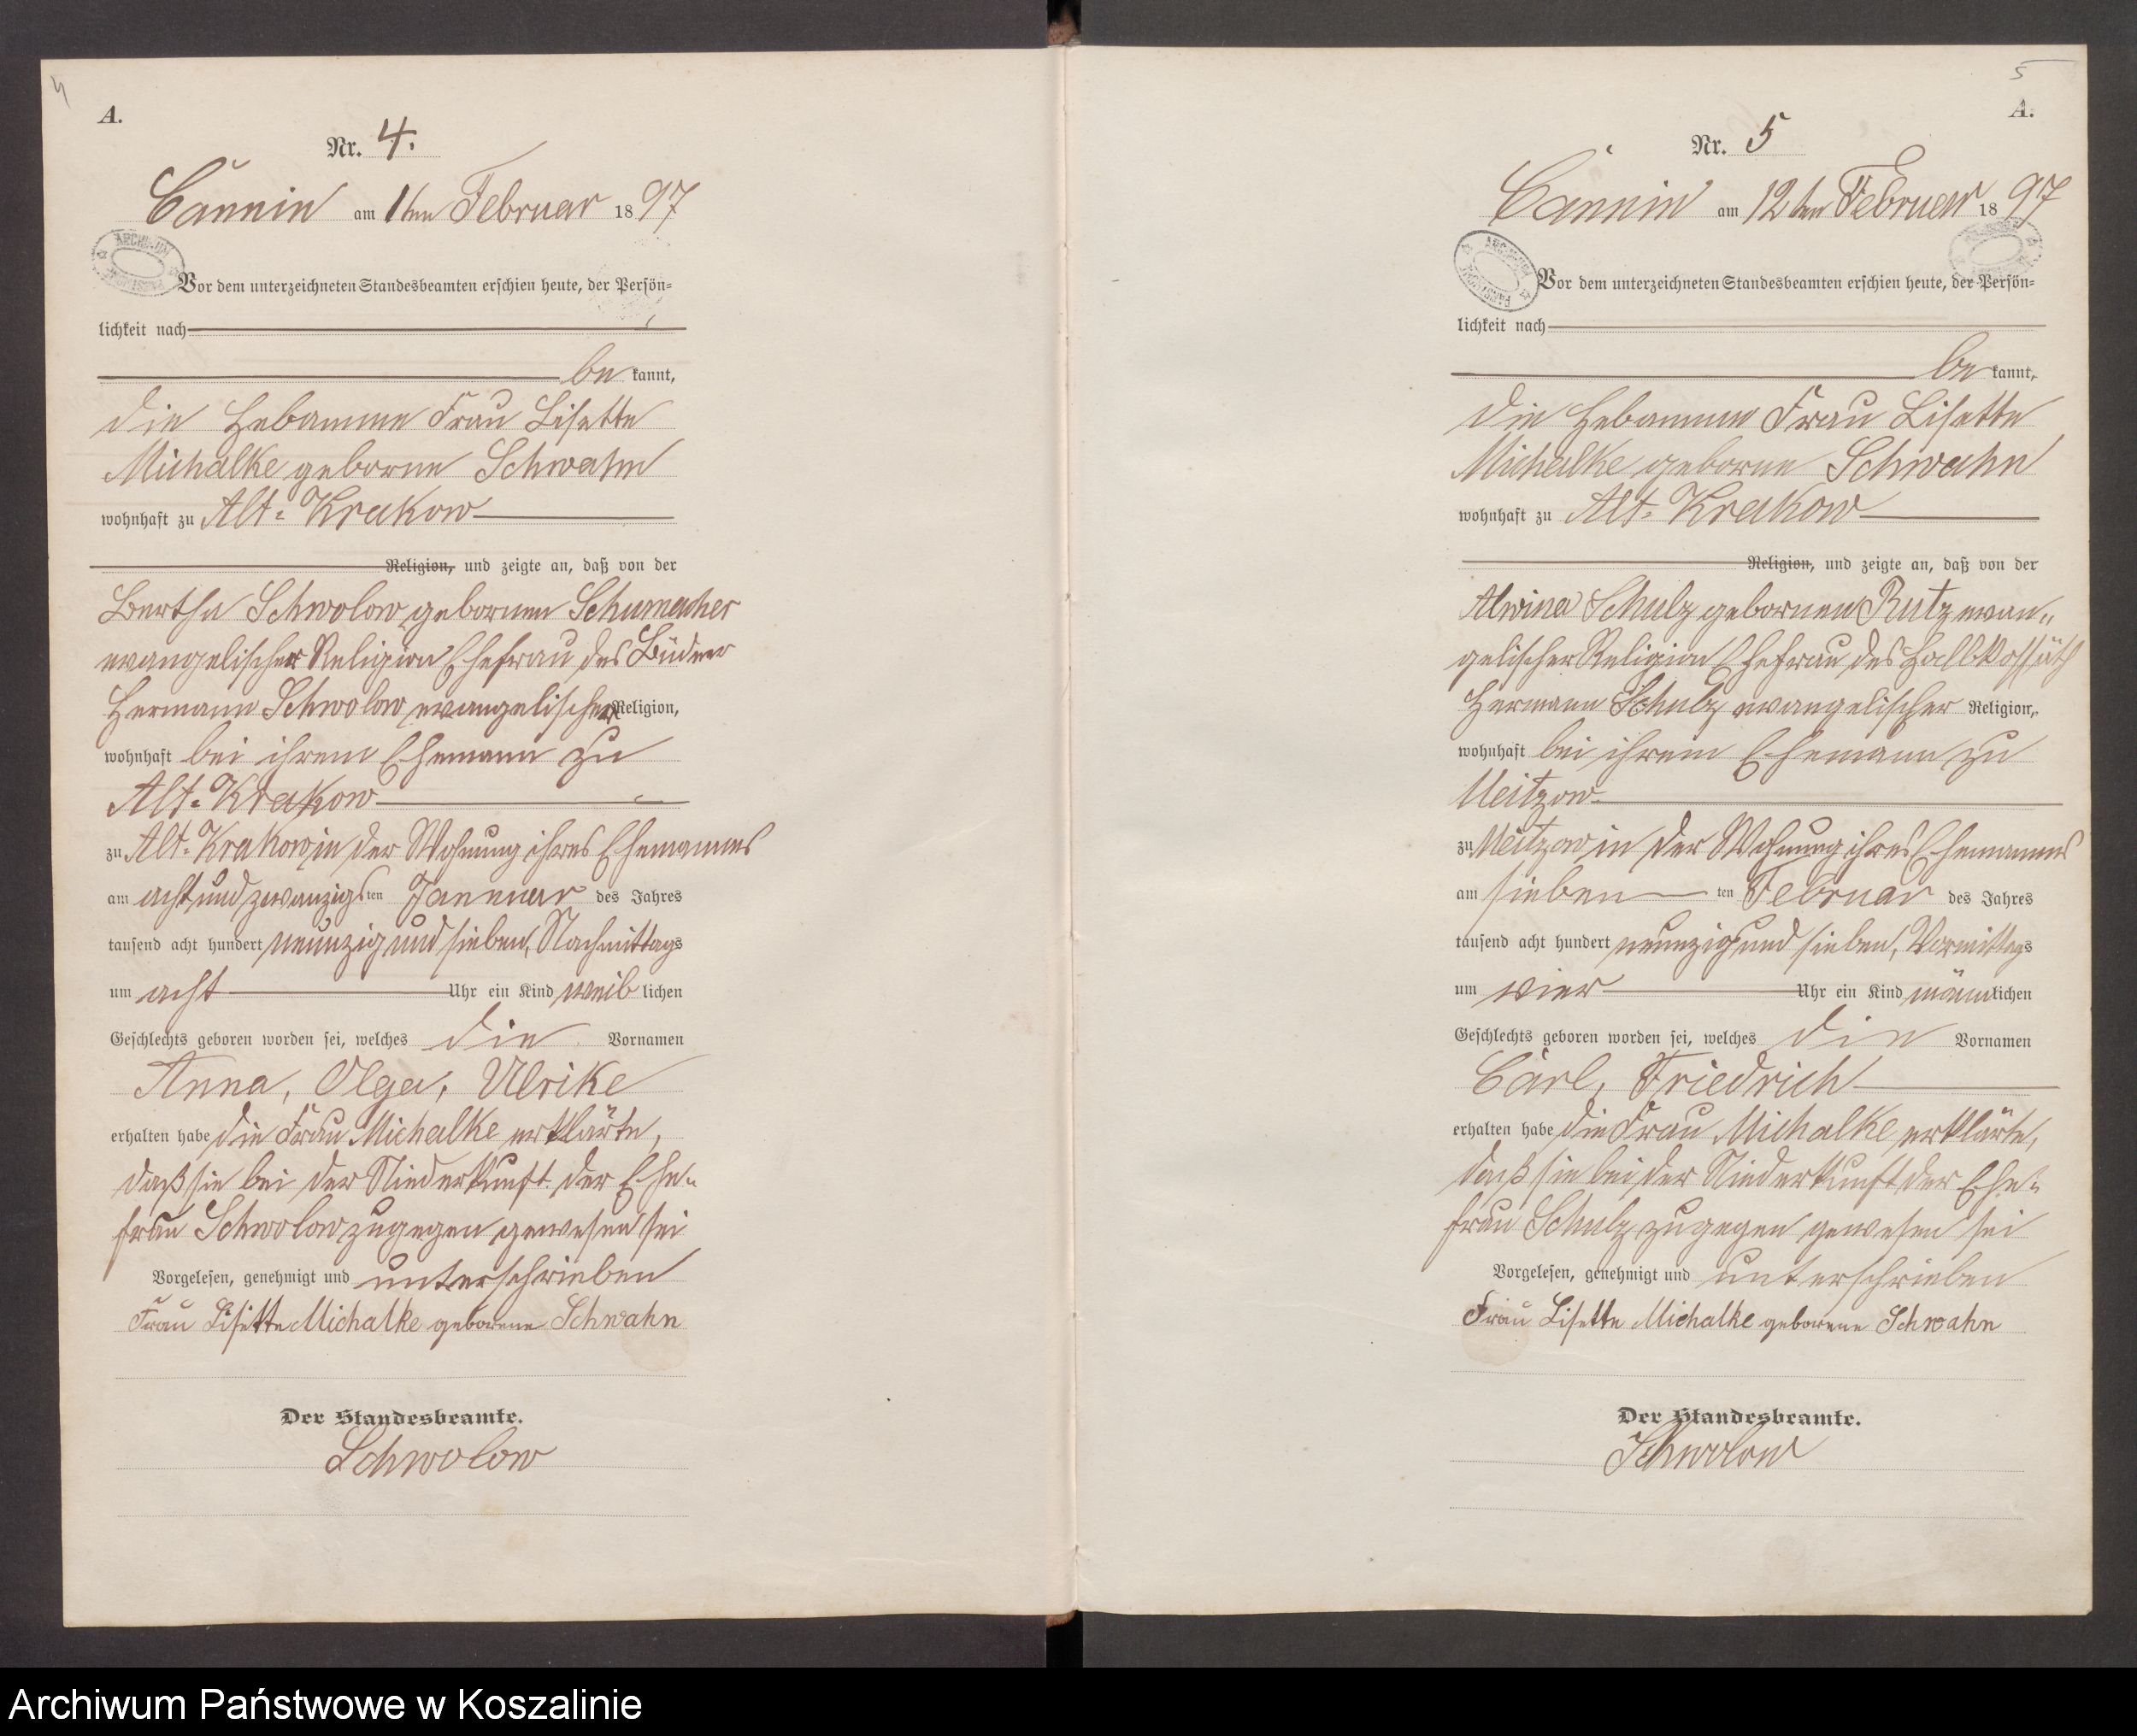 4
A.
Nr. 4.
Cannin am 1ten Februar 1897
ARCHIWUM
Vor dem unterzeichneten Standesbeamten erschien heute, der Persön-
lichkeit nach
be kannt,
die Hebamme Frau Lisette
Michalke geborne Schwahn
wohnhaft zu Alt-Krakow
Religion, und zeigte an, daß von der
Bertha Schwolow gebornen Schumacher
evangelischer Religion Ehefrau des Büdner
Hermann Schwolow evangelischer Religion,
wohnhaft bei ihrem Ehemann zu
Alt-Krakow
zu Alt-Krakow in der Wohnung ihres Ehemannes
am acht und zwanzigsten Januar des Jahres
tausend acht hundert neunzig und sieben, Nachmittags
um acht Uhr ein Kind weiblichen
Geschlechts geboren worden sei, welches die Vornamen
Anna, Olga, Ulrike
erhalten habe die Frau Michalke erklärte,
daß sie bei der Niederkunft der Ehe-
frau Schwolow zugegen gewesen sei
Vorgelesen, genehmigt und unterschrieben
Frau Lisette Michalke geborene Schwahn
Der Standesbeamte.
Schwolow
5
A.
Nr. 5
Cannin am 12ten Februar 1897
ARCHIWUM
Vor dem unterzeichneten Standesbeamten erschien heute, der Persön-
lichkeit nach
be kannt,
die Hebamme Frau Lisette
Michalke geborne Schwahn
wohnhaft zu Alt-Krakow
Religion, und zeigte an, daß von der
Alwina Schulz gebornen Rutz evan-
gelischer Religion Ehefrau des Halbkossäth
Hermann Schulz evangelischer Religion,
wohnhaft bei ihrem Ehemann zu
Meitzow
zu Meitzow in der Wohnung ihres Ehemannes
am sieben ten Februar des Jahres
tausend acht hundert neunzig und sieben, Vormittags
um vier Uhr ein Kind männlichen
Geschlechts geboren worden sei, welches die Vornamen
Carl, Friedrich
erhalten habe die Frau Michalke erklärte,
daß sie bei der Niederkunft der Ehe-
frau Schulz zugegen gewesen sei
Vorgelesen, genehmigt und unterschrieben
Frau Lisette Michalke geborene Schwahn
Der Standesbeamte.
Schwolow
Archiwum Państwowe w Koszalinie